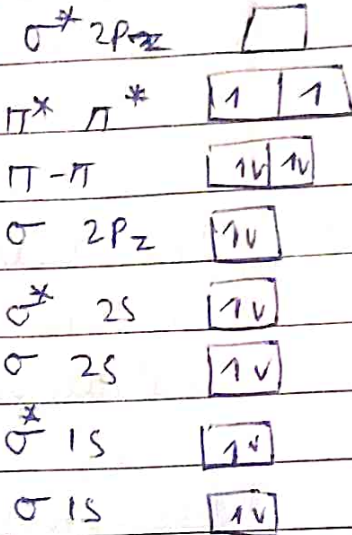 σ* 2Pz ☐
π* π* 1 1
π-π 1v 1v
σ 2Pz 1v
σ* 2S 1v
σ 2S 1v
σ* 1S 1v
σ 1S 1v